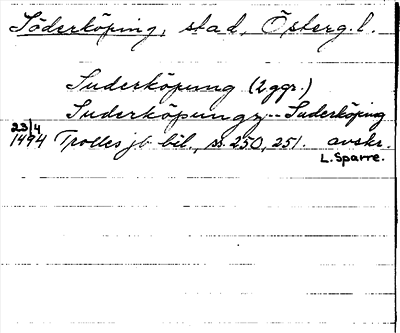 Söderköping, stad, Österg. l.
Suderköpung (2 ggr.)
Suderköpungz -- Suderköping
23/4
1494 Trolles jb bil., ss. 250, 251. avskr.
L. Sparre.